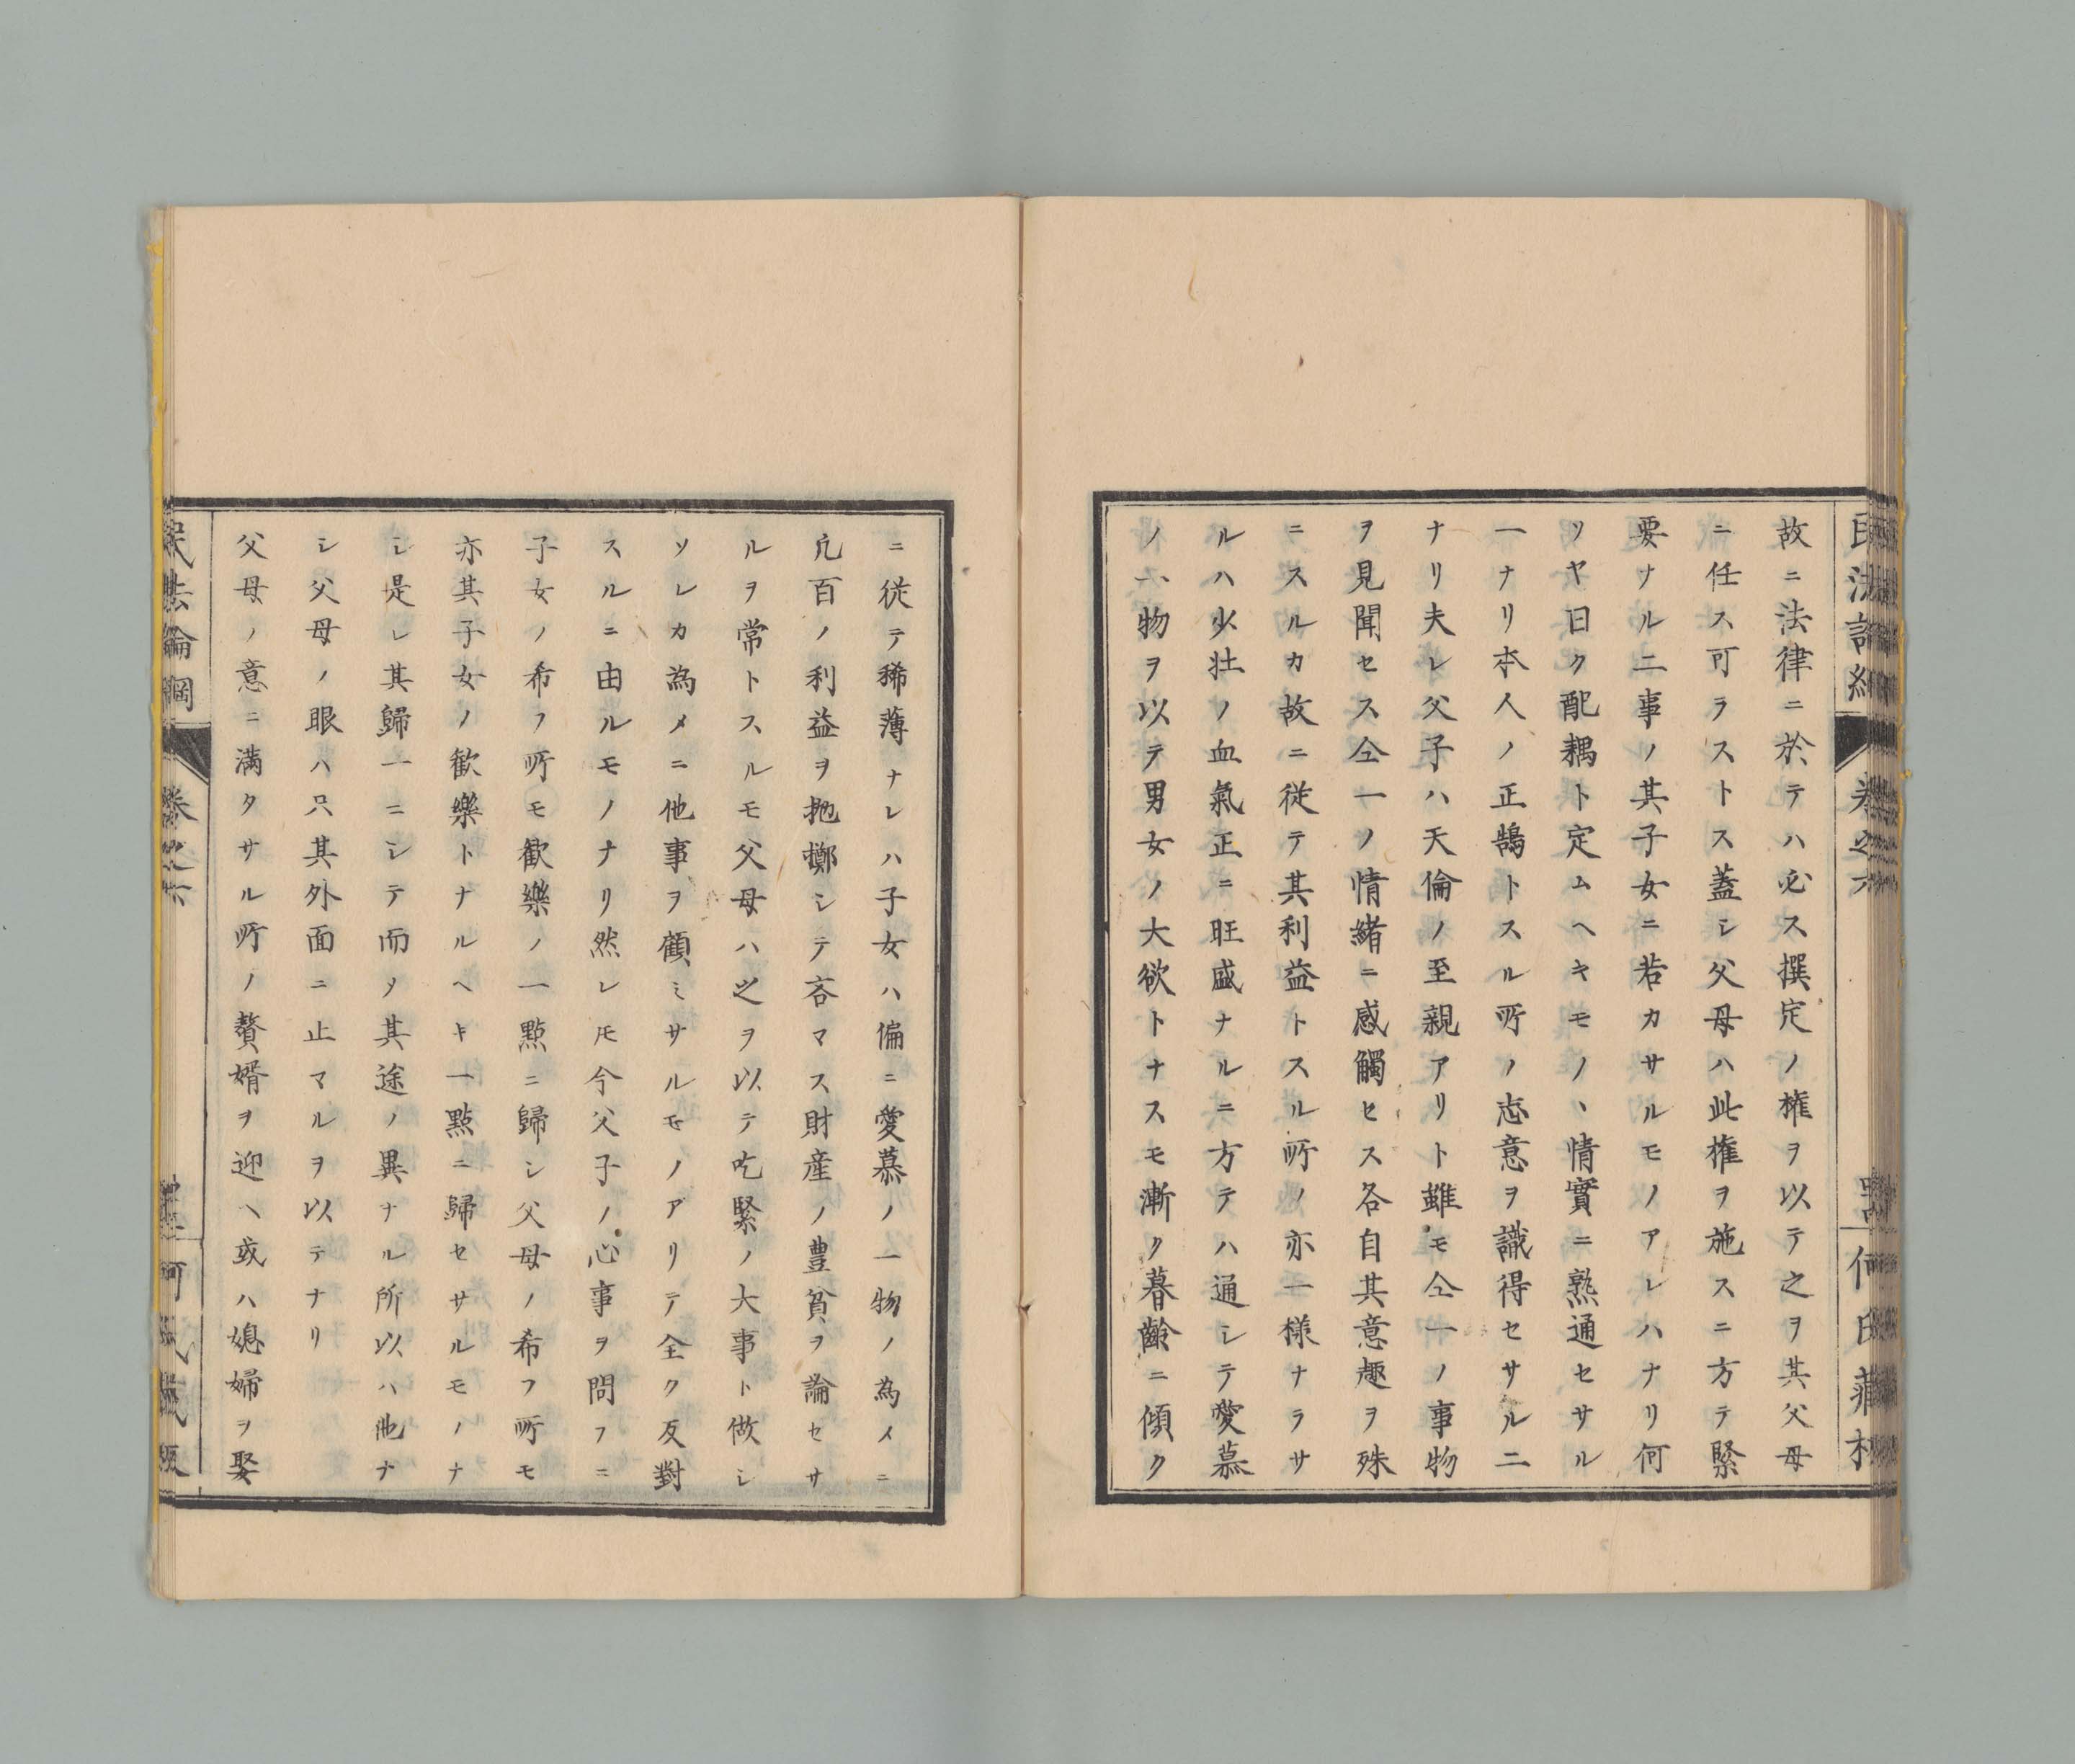 故ニ法律ニ於テハ必ス撰定ノ権ヲ以テ之ヲ其父母
ニ任ス可ラストス蓋シ父母ハ此権ヲ施スニ方テ緊
要ナル二事ノ其子女ニ若カサルモノアレハナリ何
ソヤ曰ク配耦ト定ムヘキモノヽ情實ニ熟通セサル
一ナリ本人ノ正鵠トスル所ノ志意ヲ識得セサル二
ナリ夫レ父子ハ天倫ノ至親アリト雖モ仝一ノ事物
ヲ見聞セス仝一ノ情緒ニ感觸セス各自其意趣ヲ殊
ニスルカ故ニ従テ其利益トスル所ノ亦一様ナラサ
ルハ少壮ノ血氣正ニ旺盛ナルニ方テハ通シテ愛慕
ノ一物ヲ以テ男女ノ大欲トナスモ漸ク暮齡ニ傾ク
ニ従テ稀薄ナレハ子女ハ偏ニ愛慕ノ一物ノ為メニ
凢百ノ利益ヲ抛擲シテ吝マス財産ノ豊貧ヲ論セサ
ルヲ常トスルモ父母ハ之ヲ以テ吃緊ノ大事ト做シ
ソレカ為メニ他事ヲ顧ミサルモノアリテ全ク反對
スルニ由ルモノナリ然レ𪜈今父子ノ心事ヲ問フニ
子女ノ希フ所モ歓樂ノ一點ニ歸シ父母ノ希フ所モ
亦其子女ノ歓樂トナルヘキ一點ニ歸セサルモノナ
シ是レ其歸一ニシテ而ソ其途ノ異ナル所以ハ他ナ
シ父母ノ眼ハ只其外面ニ止マルヲ以テナリ
父母ノ意ニ満タサル所ノ贅婿ヲ迎ヘ或ハ媳婦ヲ娶
民法論綱
卷之六
何氏藏板